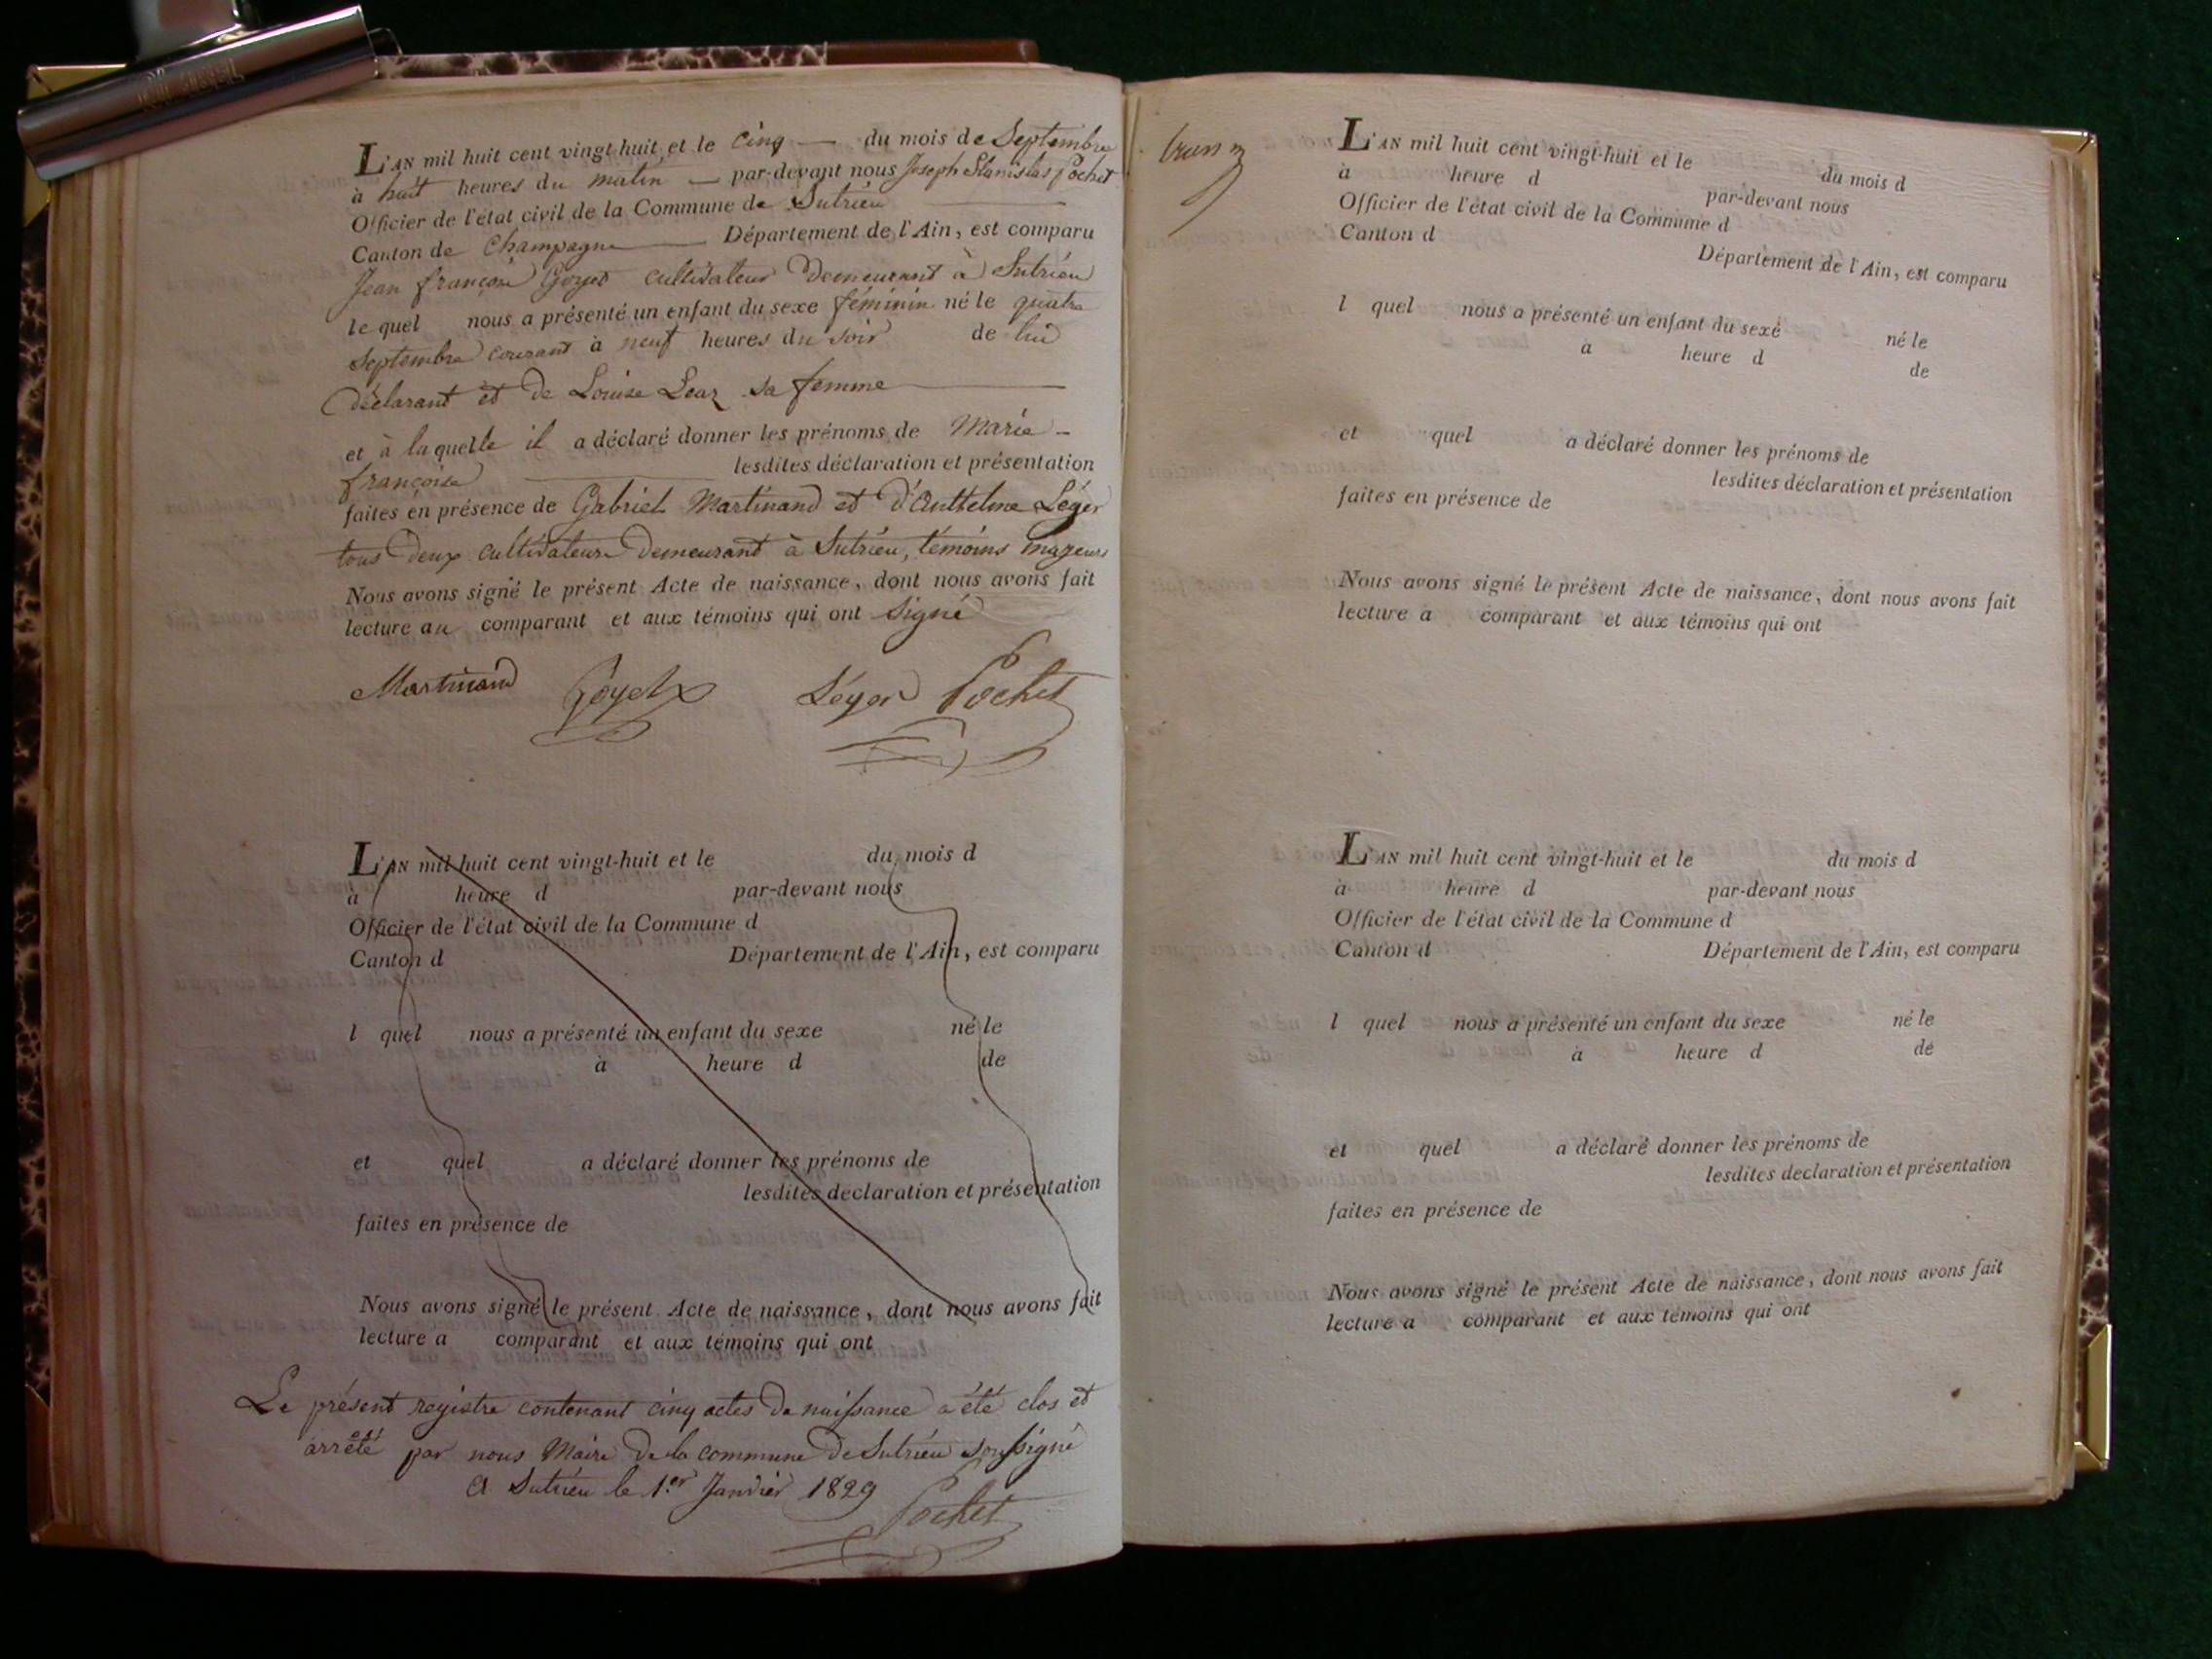 L'AN mil huit cent vingt-huit et le cinq — du mois de Septembre
à huit heures du matin — par-devant nous Joseph Stanislas Pochet
Officier de l'état civil de la Commune de Sutrieu
Canton de Champagne — Département de l'Ain, est comparu
Jean françois Goyet cultivateur Demeurant à Sutrieu
le quel nous a présenté un enfant du sexe féminin né le quatre
Septembre courant à neuf heures du soir de lui
Déclarant et de Louise Lear sa femme
et à laquelle il a déclaré donner les prénoms de Marie -
françoise lesdites déclaration et présentation
faites en présence de Gabriel Martinand et d'Anthelme Léger
tous Deux cultivateurs Demeurant à Sutrieu, témoins majeurs
Nous avons signé le présent Acte de naissance, dont nous avons fait
lecture au comparant et aux témoins qui ont Signé
Martinand Goyet Léger Pochet
L'AN mil huit cent vingt-huit et le du mois d
à heure d par-devant nous
Officier de l'état civil de la Commune d
Canton d Département de l'Ain, est comparu
l quel nous a présenté un enfant du sexe né le
à heure d de
et quel a déclaré donner les prénoms de
lesdites declaration et présentation
faites en présence de
Nous avons signé le présent Acte de naissance, dont nous avons fait
lecture a comparant et aux témoins qui ont
Le présent registre contenant cinq actes De naissance a été clos et
arrêté par nous Maire De la commune De Sutrieu soussigné
A Sutrieu le 1er Janvier 1829
Pochet
L'AN mil huit cent vingt-huit et le du mois d
à heure d par-devant nous
Officier de l'état civil de la Commune d
Canton d Département de l'Ain, est comparu
l quel nous a présenté un enfant du sexe né le
à heure d de
et quel a déclaré donner les prénoms de
lesdites déclaration et présentation
faites en présence de
Nous avons signé le présent Acte de naissance, dont nous avons fait
lecture a comparant et aux témoins qui ont
L'AN mil huit cent vingt-huit et le du mois d
à heure d par-devant nous
Officier de l'état civil de la Commune d
Canton d Département de l'Ain, est comparu
l quel nous a présenté un enfant du sexe né le
à heure d de
et quel a déclaré donner les prénoms de
lesdites declaration et présentation
faites en présence de
Nous avons signé le présent Acte de naissance, dont nous avons fait
lecture a comparant et aux témoins qui ont